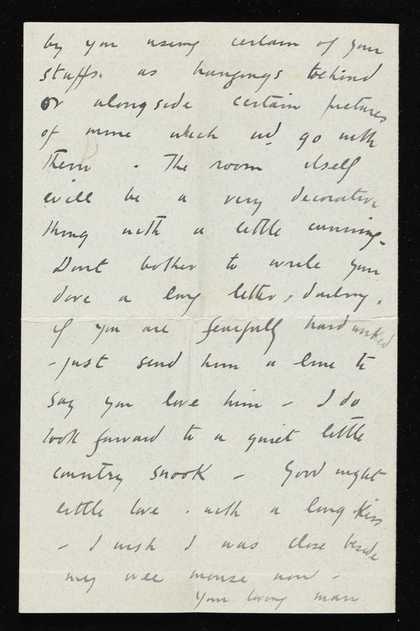 by you using certain of your
stuffs. as hangings behind
or alongside certain pictures
of mine which wd go with
them. The room itself
will be a very decorative
thing with a little cunning.
Dont bother to write your
dove a long letter, darling,
if you are fearfully hard worked
- just send him a line to
say you love him - I do
look forward to a quiet little
country snook - Good night
little love. with a long kiss
- I wish I was close beside
my wee mouse now -
Your loving man